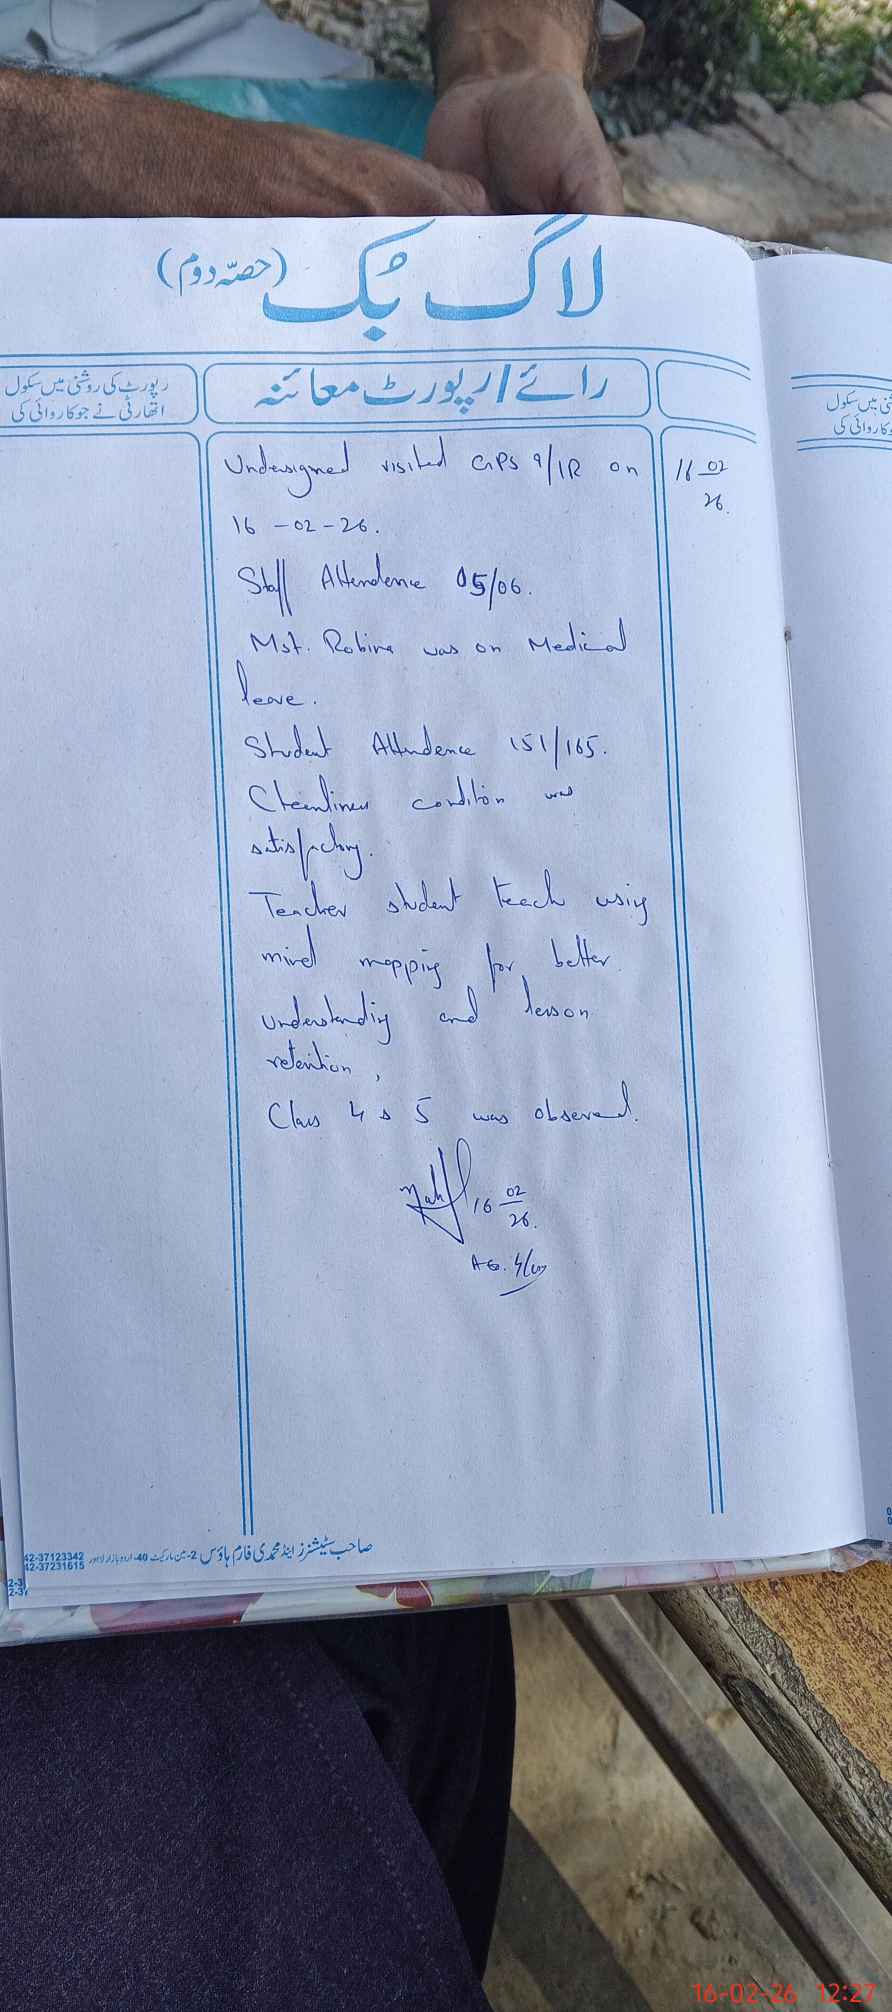 لاگ بُک (حصّہ دوم)
رائے/رپورٹ معائنہ
رپورٹ کی روشنی میں سکول
اتھارٹی نے جو کاروائی کی
Undersigned visited GPS 9/1R on
16 - 02 - 26.
16 02
26.
Staff Attendence 05/06.
Mst. Robina was on Medical
leave.
Student Attendence 151/165.
Cleanliness condition was
satisfactory.
Teacher student teach using
mind mapping for better
understanding and lesson
retention,
Class 4 & 5 was observed.
16 02
26.
میں سکول
کاروائی کی
صاحب سٹیشنرز اینڈ محمدی فارم ہاؤس 2-مین مارکیٹ 40-اردو بازار لاہور
42-37123342
42-37231615
16-02-26 12:27